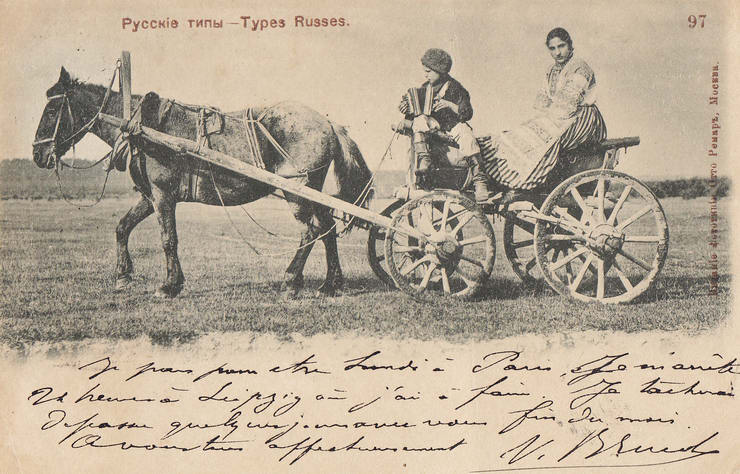 Русскіе типы — Types Russes.
97
Изданіе фототипіи Отто Ренаръ, Москва.
Je pars pour être Lundi à Paris. Je m'arrête
24 heures à Leipzig où j'ai à faire. Je tacherai
de passer quelques jours avec vous fin du mois.
A vous très affectueusement